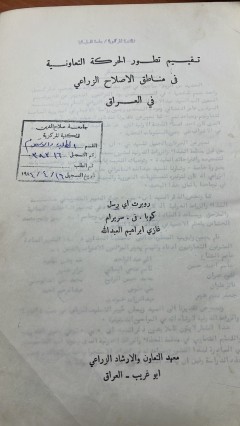 تقييم تطور الحركة التعاونية
في مناطق الاصلاح الزراعي
في العراق
جامعة صلاح الدين
المكتبة المركزية
القسم
رقم التسجيل
رقم الطلب
تاريخ التسجيل ١٦ / ٤ /
روبرت اي برسل
كوبا . في . سريرام
غازي ابراهيم العبدالله
معهد التعاون والارشاد الزراعي
ابو غريب - العراق